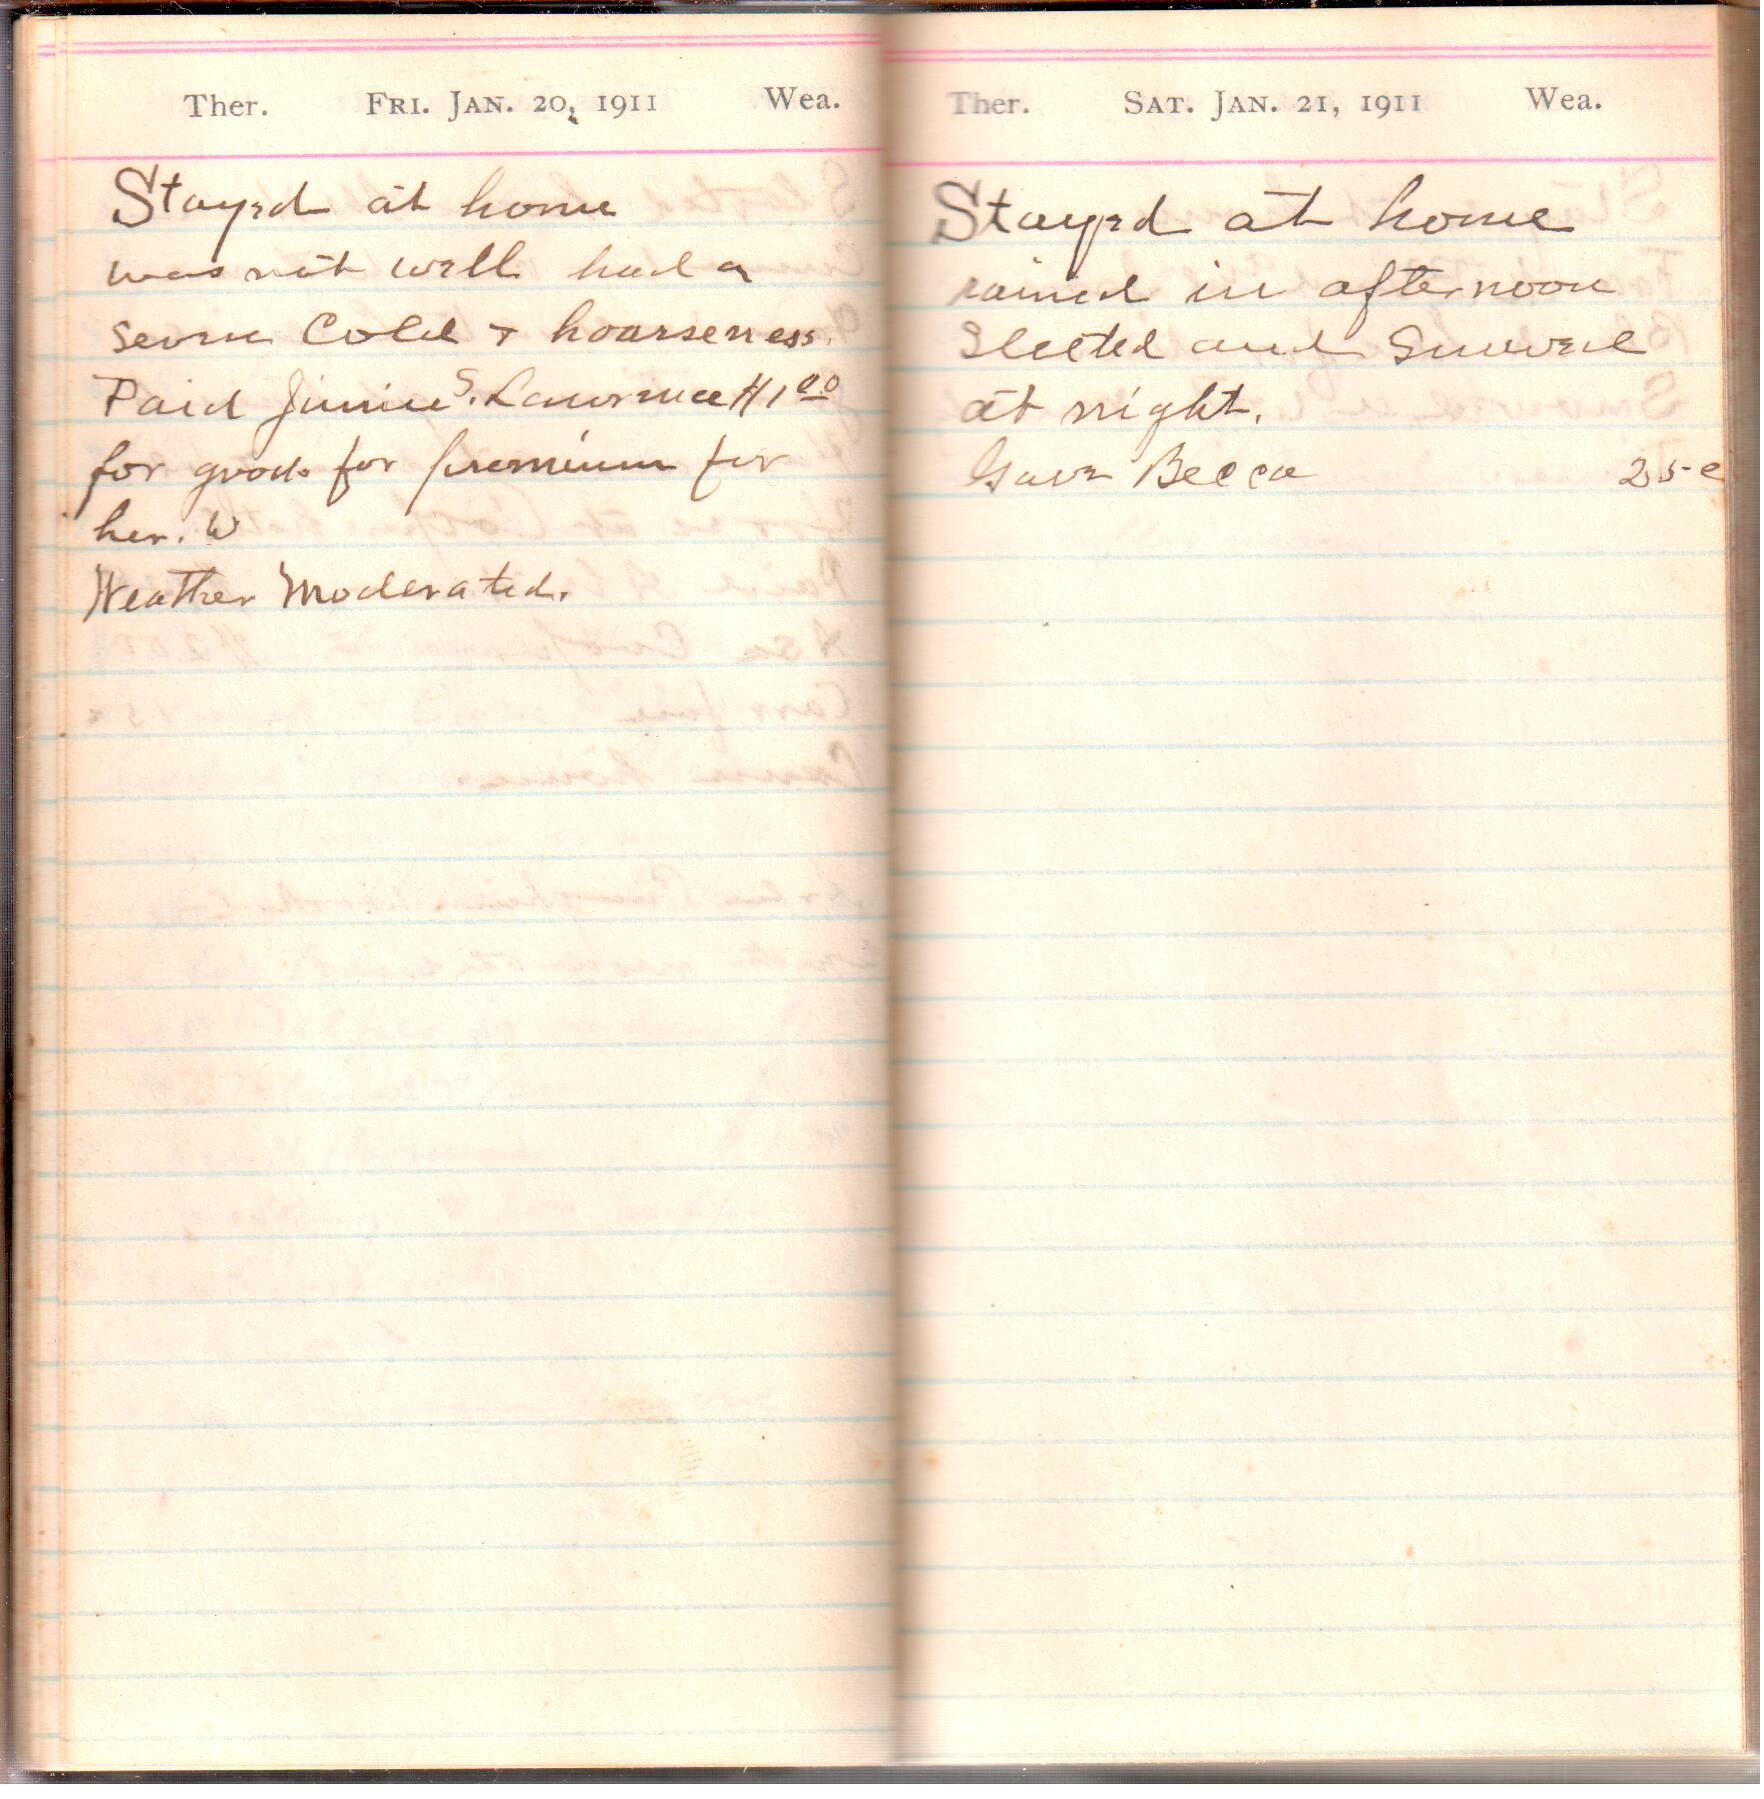 Ther. FRI. JAN. 20, 1911 Wea.
Stayed at home
was not well had a
severe Cold & hoarseness.
Paid Jimmie S. Lawrence $1.00
for goods for premium for
her. W
Weather Moderated.
Ther. SAT. JAN. 21, 1911 Wea.
Stayed at home
rained in afternoon
Sleeted and Snowed
at night.
Gave Becca 25c